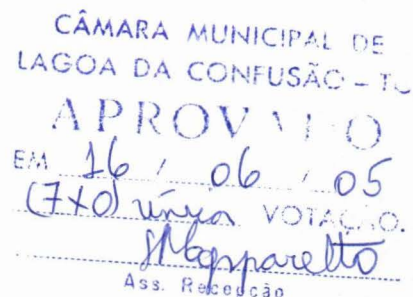 CÂMARA MUNICIPAL DE
LAGOA DA CONFUSÃO – TO
APROVADO
EM 16 / 06 / 05
(7x0) única VOTAÇÃO.
Ass. Recepção